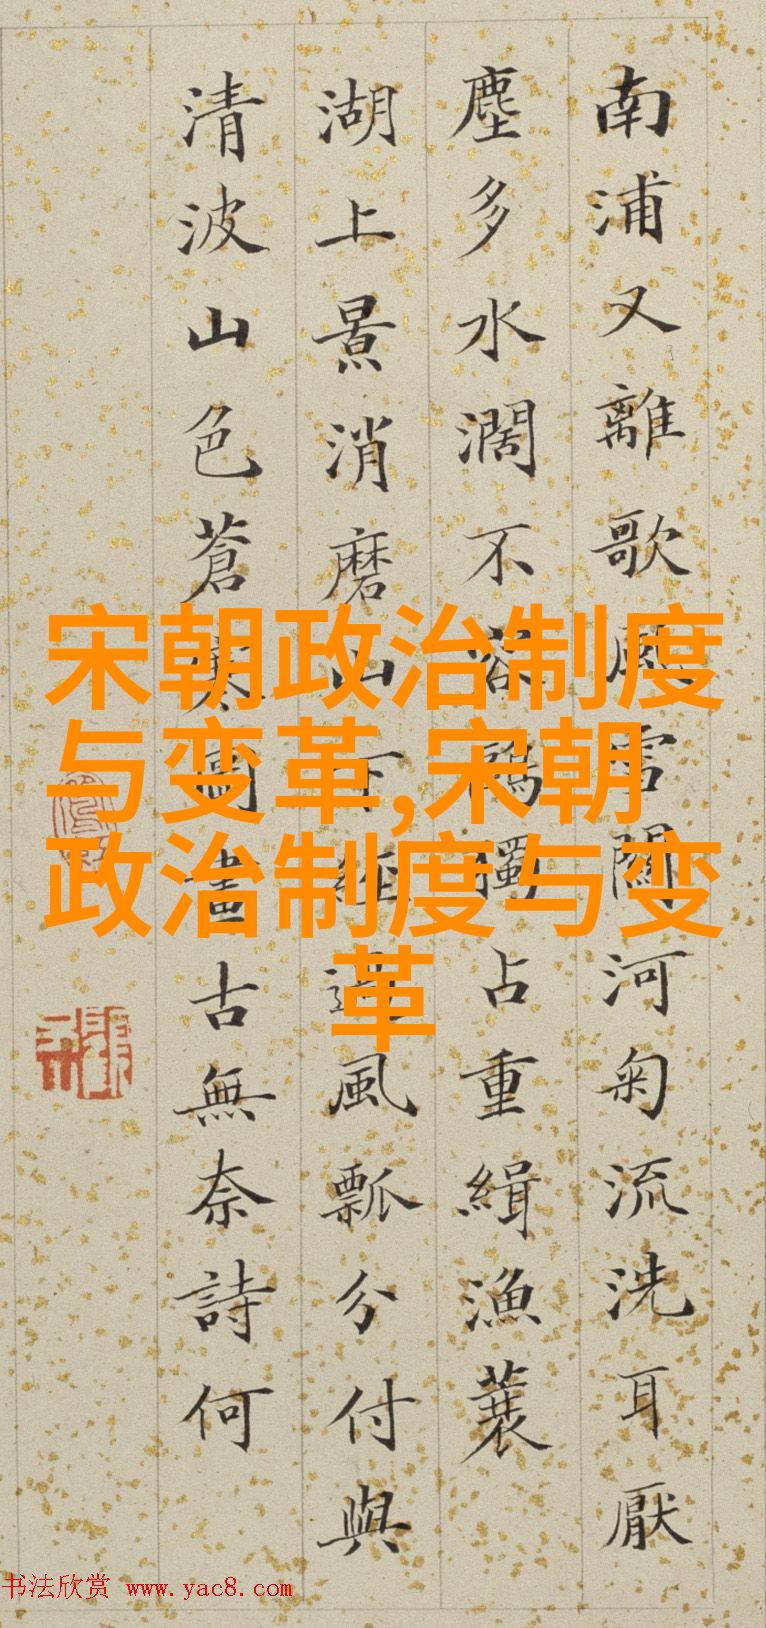 南浦又離歌風雪關河匊流洗耳厭
塵多水濶不容鷗獨占重緝漁蓑
湖上景消磨山下經過風瓢分付與
清波山色蒼寒圖畫古無奈詩何
宋朝政治制度
与变革,宋朝
政治制度与变
革
书法欣赏 www.yac8.com